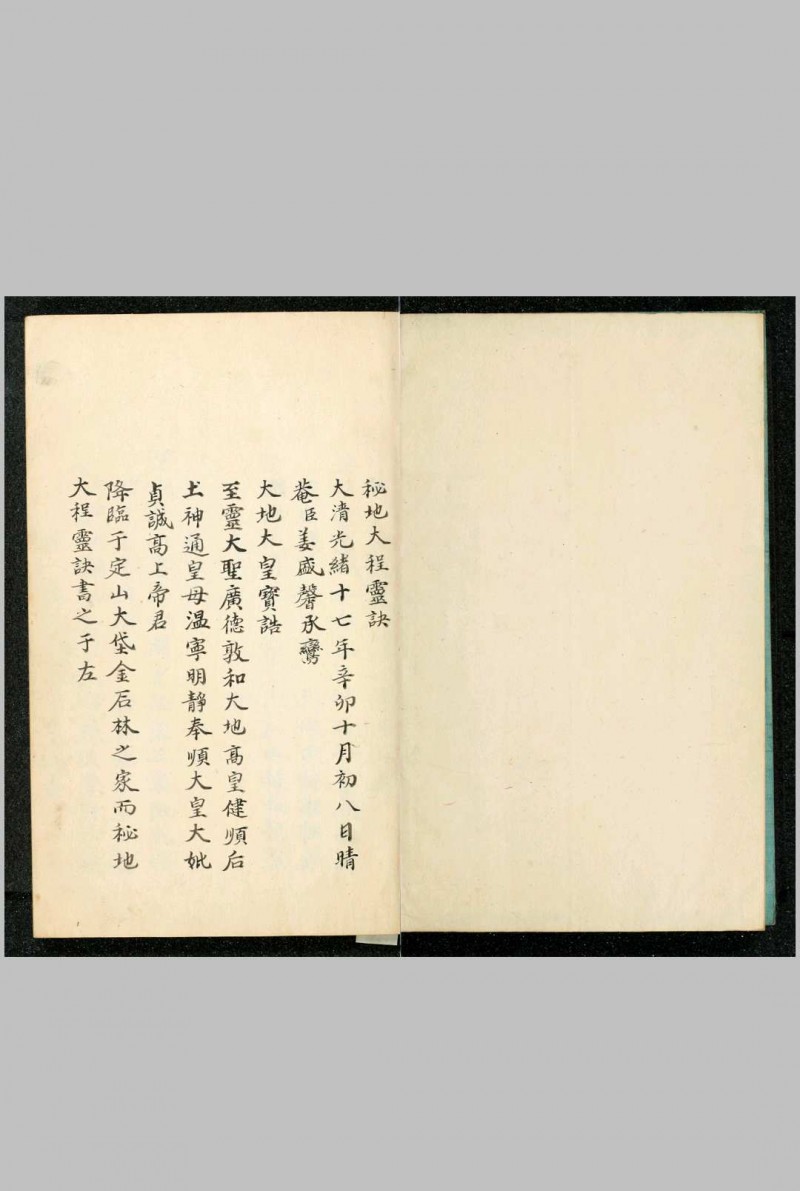 秘地大程靈訣
大清光緒十七年辛卯十月初八日晴
菴臣姜盛馨承鸞
大地大皇寳誥
至靈大聖廣德敦和大地高皇健順后
土神通皇母温寧明静奉順大皇大妣
貞誠高上帝君
降臨于定山大垈金石林之家而秘地
大程靈訣書之于左